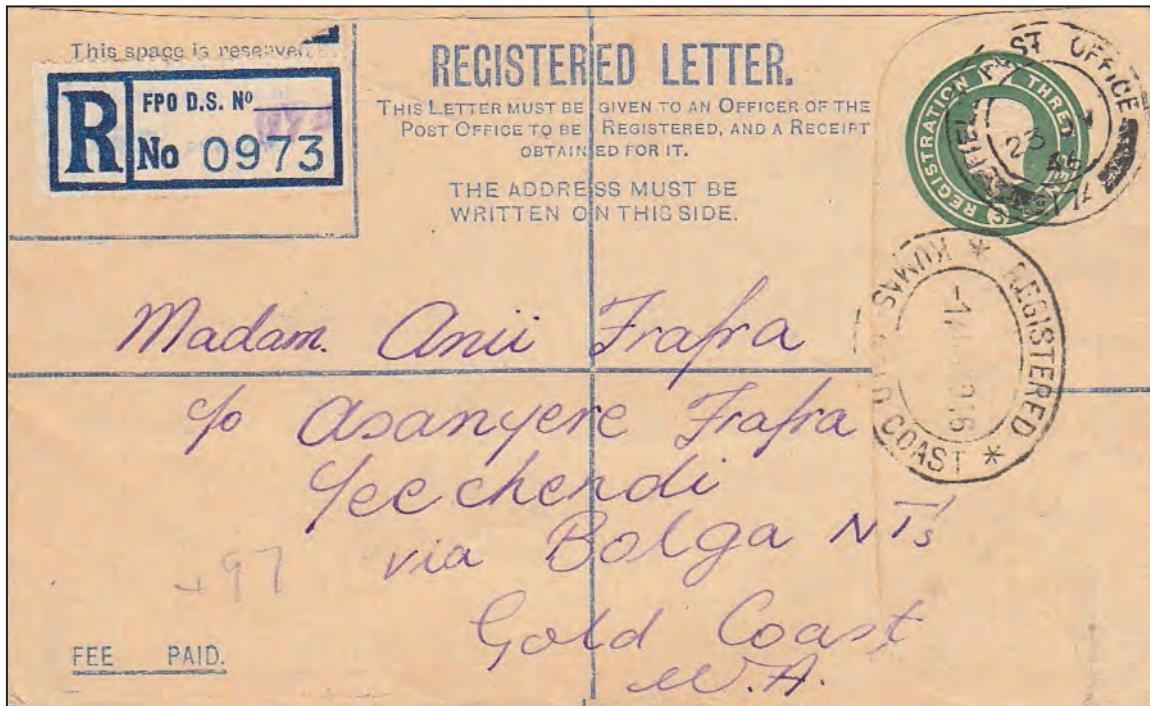 This space is reserved
R
FPO D.S. Nº
No 0973
REGISTERED LETTER.
THIS LETTER MUST BE GIVEN TO AN OFFICER OF THE
POST OFFICE TO BE REGISTERED, AND A RECEIPT
OBTAINED FOR IT.
THE ADDRESS MUST BE
WRITTEN ON THIS SIDE.
REGISTRATION THREE
OFFICE
23
46
REGISTERED * KUMAS COAST *
Madam. Anii Frafra
c/o Asanyere Frafra
Yeechendi
via Bolga NTs
Gold Coast
W.A.
+97
FEE PAID.